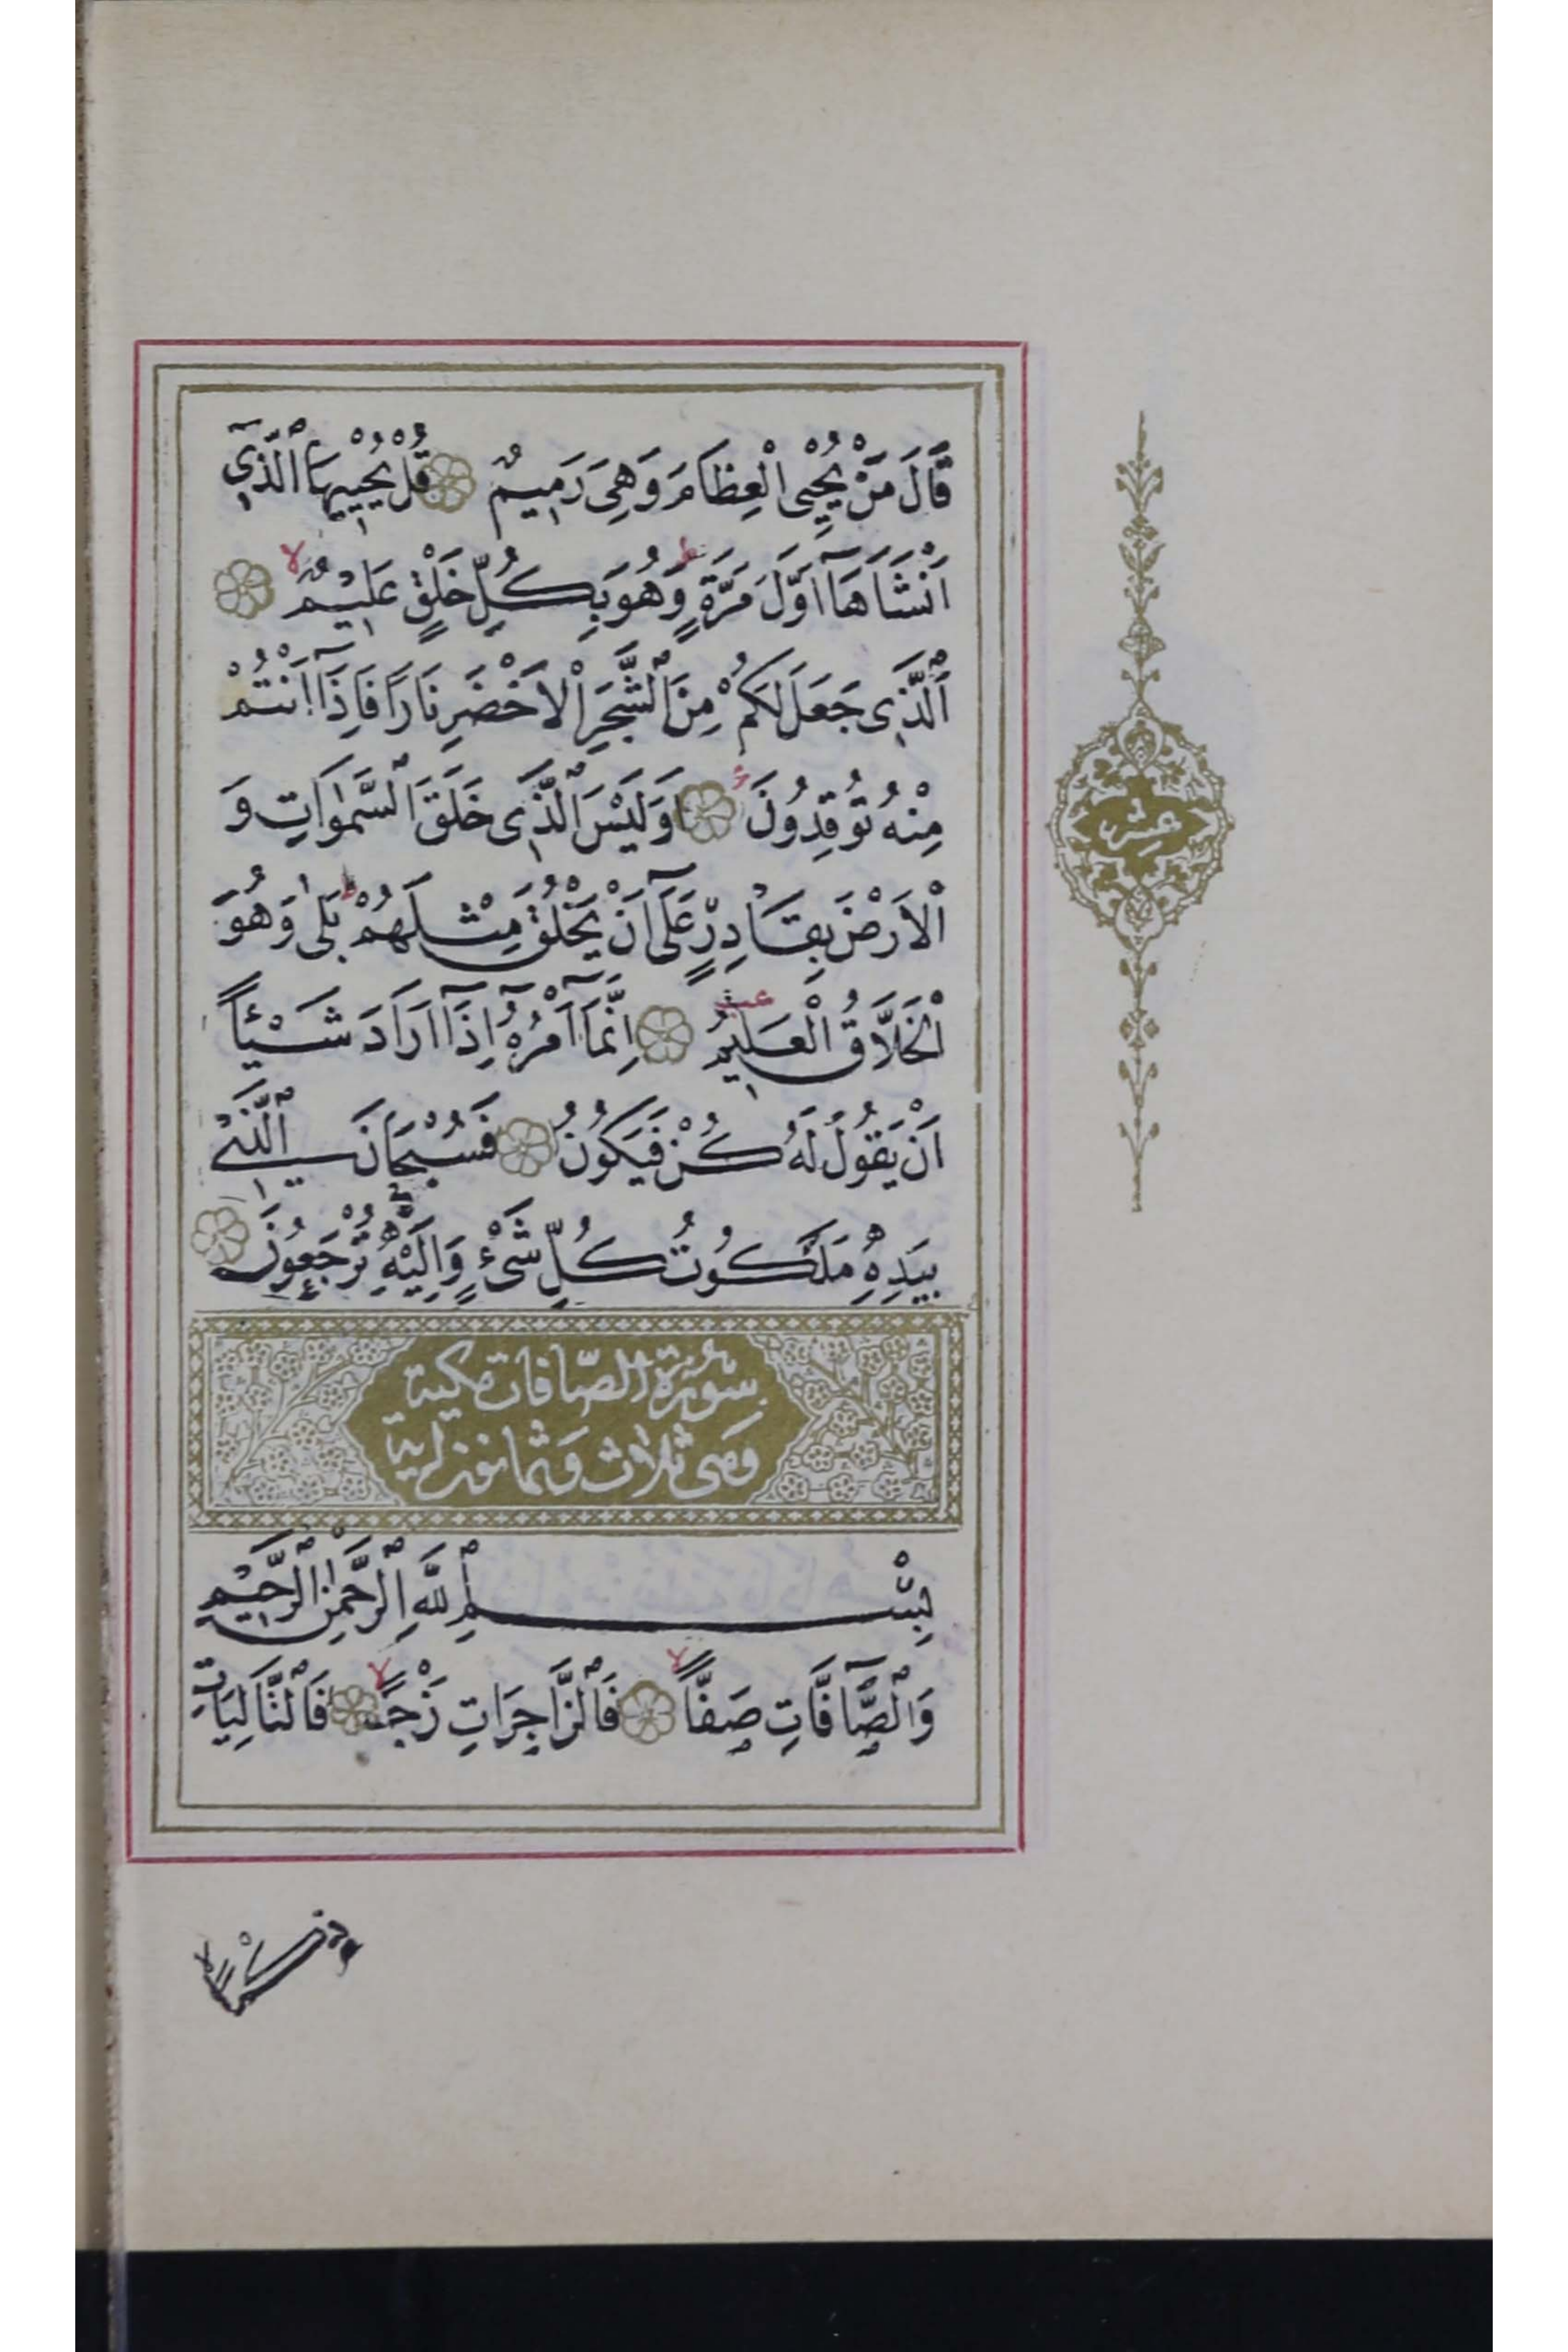 قَالَ مَنْ يُحْيِي الْعِظَامَ وَهِيَ رَمِيمٌ قُلْ يُحْيِيهَا الَّذِي
اَنْشَاَهَآ اَوَّلَ مَرَّةٍ ط وَهُوَ بِكُلِّ خَلْقٍ عَلِيمٌ لا
اَلَّذِى جَعَلَ لَكُمْ مِنَ الشَّجَرِ الْاَخْضَرِ نَارًا فَاِذَآ اَنْتُمْ
مِنْهُ تُوقِدُونَ اَوَلَيْسَ الَّذِى خَلَقَ السَّمٰوَاتِ وَ
الْاَرْضَ بِقَادِرٍ عَلَىٓ اَنْ يَخْلُقَ مِثْلَهُمْ ط بَلٰى وَهُوَ
الْخَلَّاقُ الْعَلِيمُ اِنَّمَآ اَمْرُهُٓ اِذَآ اَرَادَ شَيْئًا
اَنْ يَقُولَ لَهُ كُنْ فَيَكُونُ فَسُبْحَانَ الَّذِى
بِيَدِهِ مَلَكُوتُ كُلِّ شَىْءٍ وَاِلَيْهِ تُرْجَعُونَ
عشر
سُورَةُ الصّافات مكية
وَهى ثلاث وَثمانون اية
بِسْمِ اللَّهِ الرَّحْمٰنِ الرَّحِيمِ
وَالصَّآفَّاتِ صَفًّا لا فَالزَّاجِرَاتِ زَجْرًا لا فَالتَّالِيَاتِ